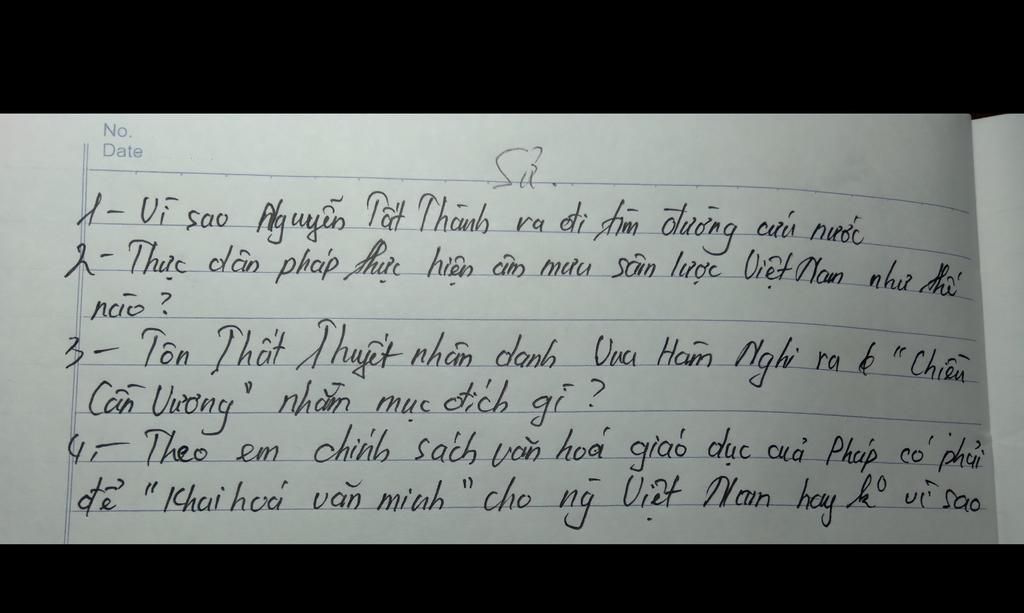 No.
Date
Sử.
1- Vì sao Nguyễn Tất Thành ra đi tìm đường cứu nước
2- Thực dân pháp thực hiện âm mưu sân lược Việt Nam như thế
nào ?
3- Tôn Thất Thuyết nhân danh Vua Hàm Nghi ra "Chiếu
Cần Vương" nhằm mục đích gì ?
4,- Theo em chính sách văn hoá giáo dục cuả Pháp có phải
để "Khai hoá văn minh" cho ng Việt Nam hay ko vì sao